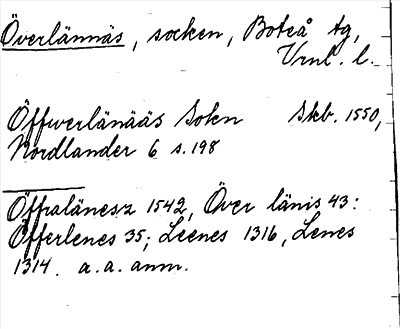 Överlännäs, socken, Boteå tg,
Vrnl. l.
Öffwerlänääs Sokn Skb. 1550,
Nordlander 6 s. 198
Öffralänesz 1542, Över länis 43:
Öfferlenes 35; Leenes 1316, Lenes
1314. a.a. anm.